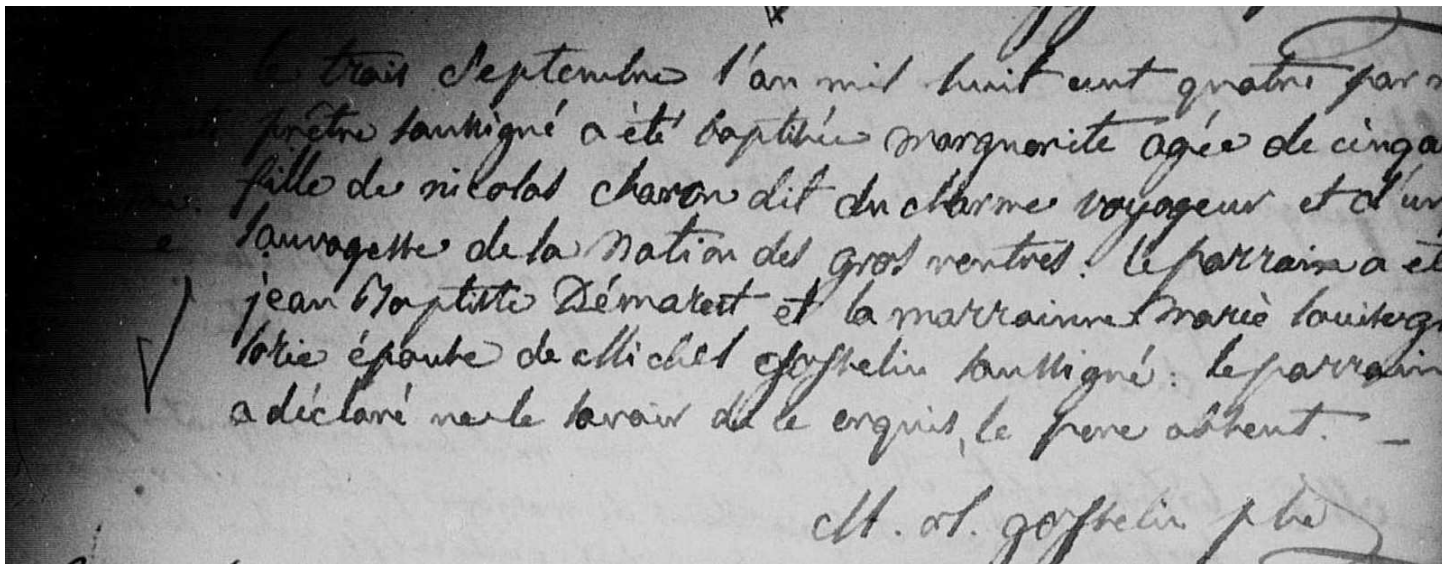 le trois Septembre l'an mil huit cent quatre par
prêtre soussigné a été baptisée marguerite agée de cinq a
fille de nicolas charon dit ducharme voyageur et d'un
sauvagesse de la Nation des gros ventres. le parrain a ét
jean Baptiste Démarest et la marrainne marie louise
épouse de Michel gosselin soussigné: le parrain
a déclaré ne le savoir de ce enquis, le pere absent.
M. gosselin ptre